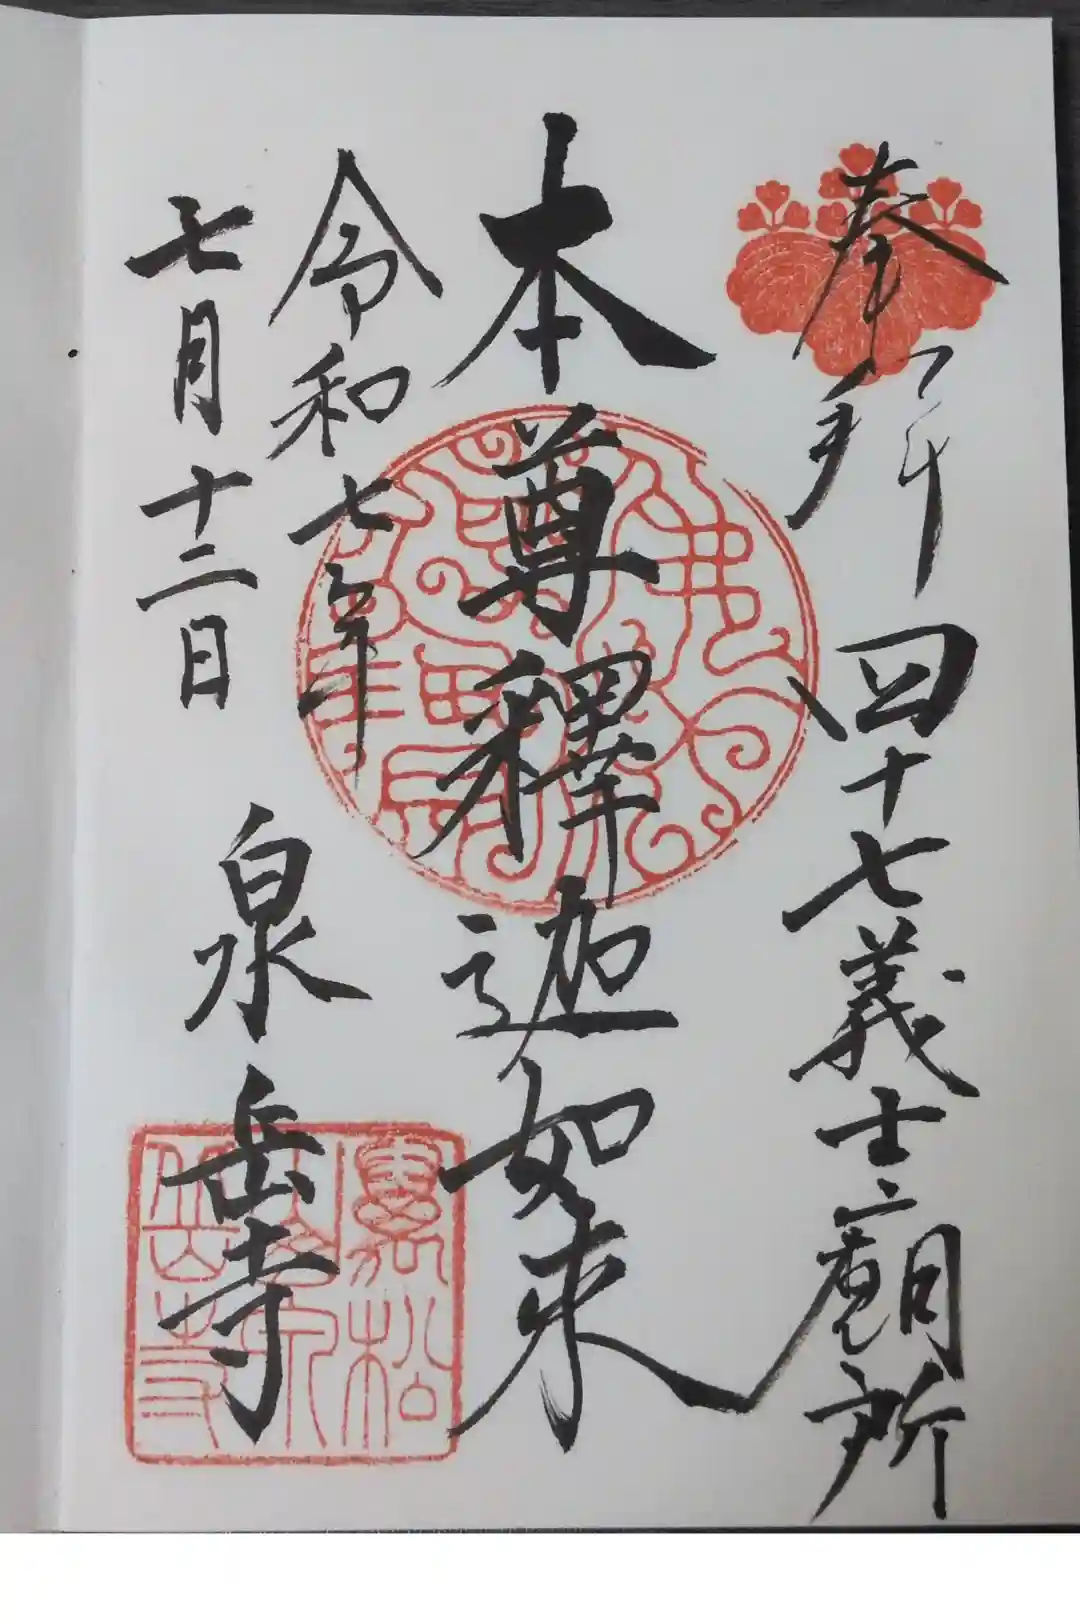 奉拝 四十七義士廟所
本尊釋迦如来
令和七年
七月十二日 泉岳寺
萬松
泉岳寺